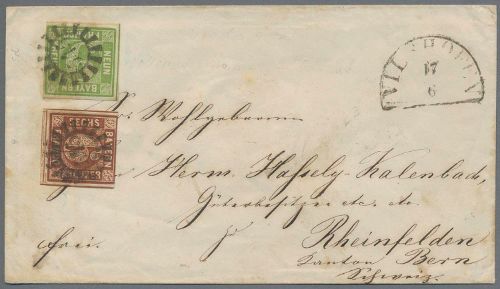 NEUN
BAYERN
SECHS
BAYERN
VILSHOFEN
17
6
Sr. Wohlgeboren
Herrn Hafsely-Kalenbach,
Güterbesitzer etc. etc.
frei.
Rheinfelden
Kanton Bern
Schweiz.